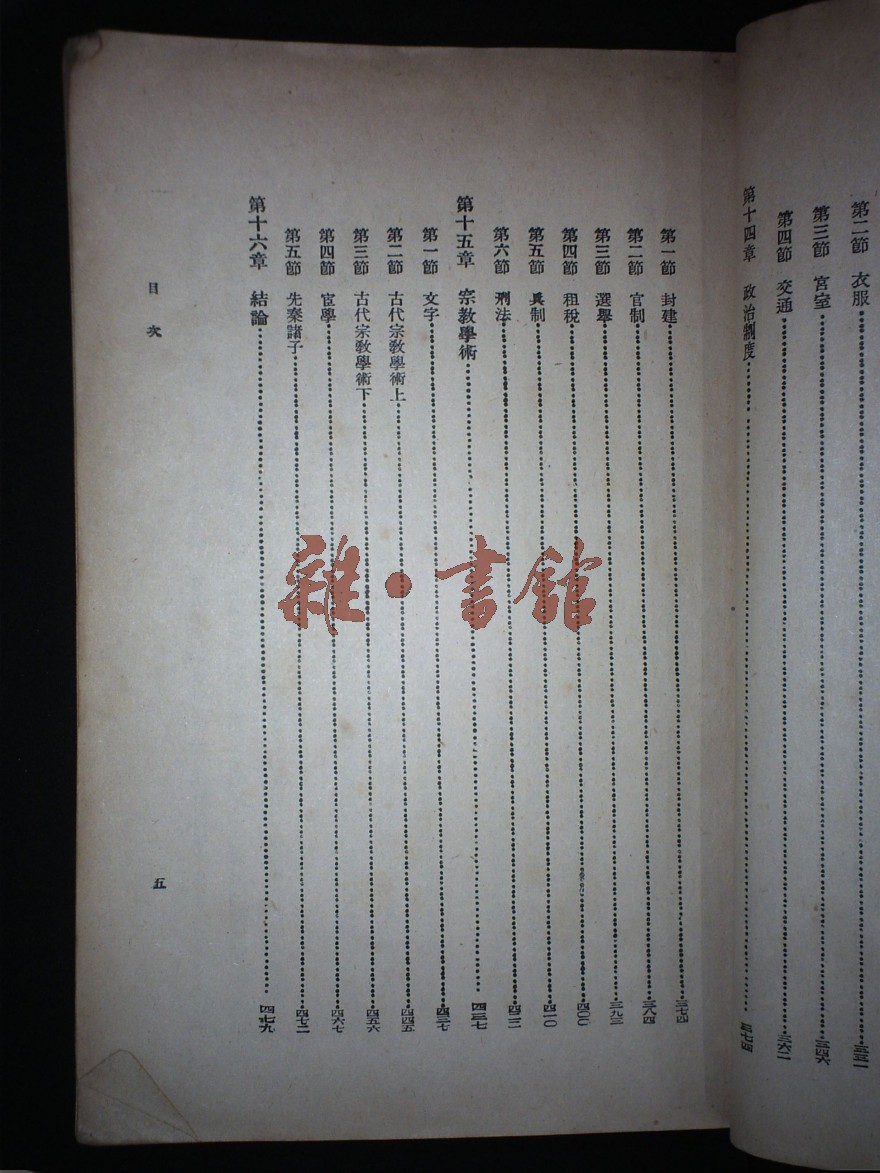 第二節 衣服……三三一
第三節 宮室……三四六
第四節 交通……三六二
第十四章 政治制度……三七四
第一節 封建……三七四
第二節 官制……三八四
第三節 選舉……三九三
第四節 租稅……四〇〇
第五節 兵制……四一〇
第六節 刑法……四二二
第十五章 宗教學術……四三七
第一節 文字……四三七
第二節 古代宗教學術上……四四五
第三節 古代宗教學術下……四五六
第四節 宦學……四六七
第五節 先秦諸子……四七二
第十六章 結論……四七九
目次
五
雜·書館